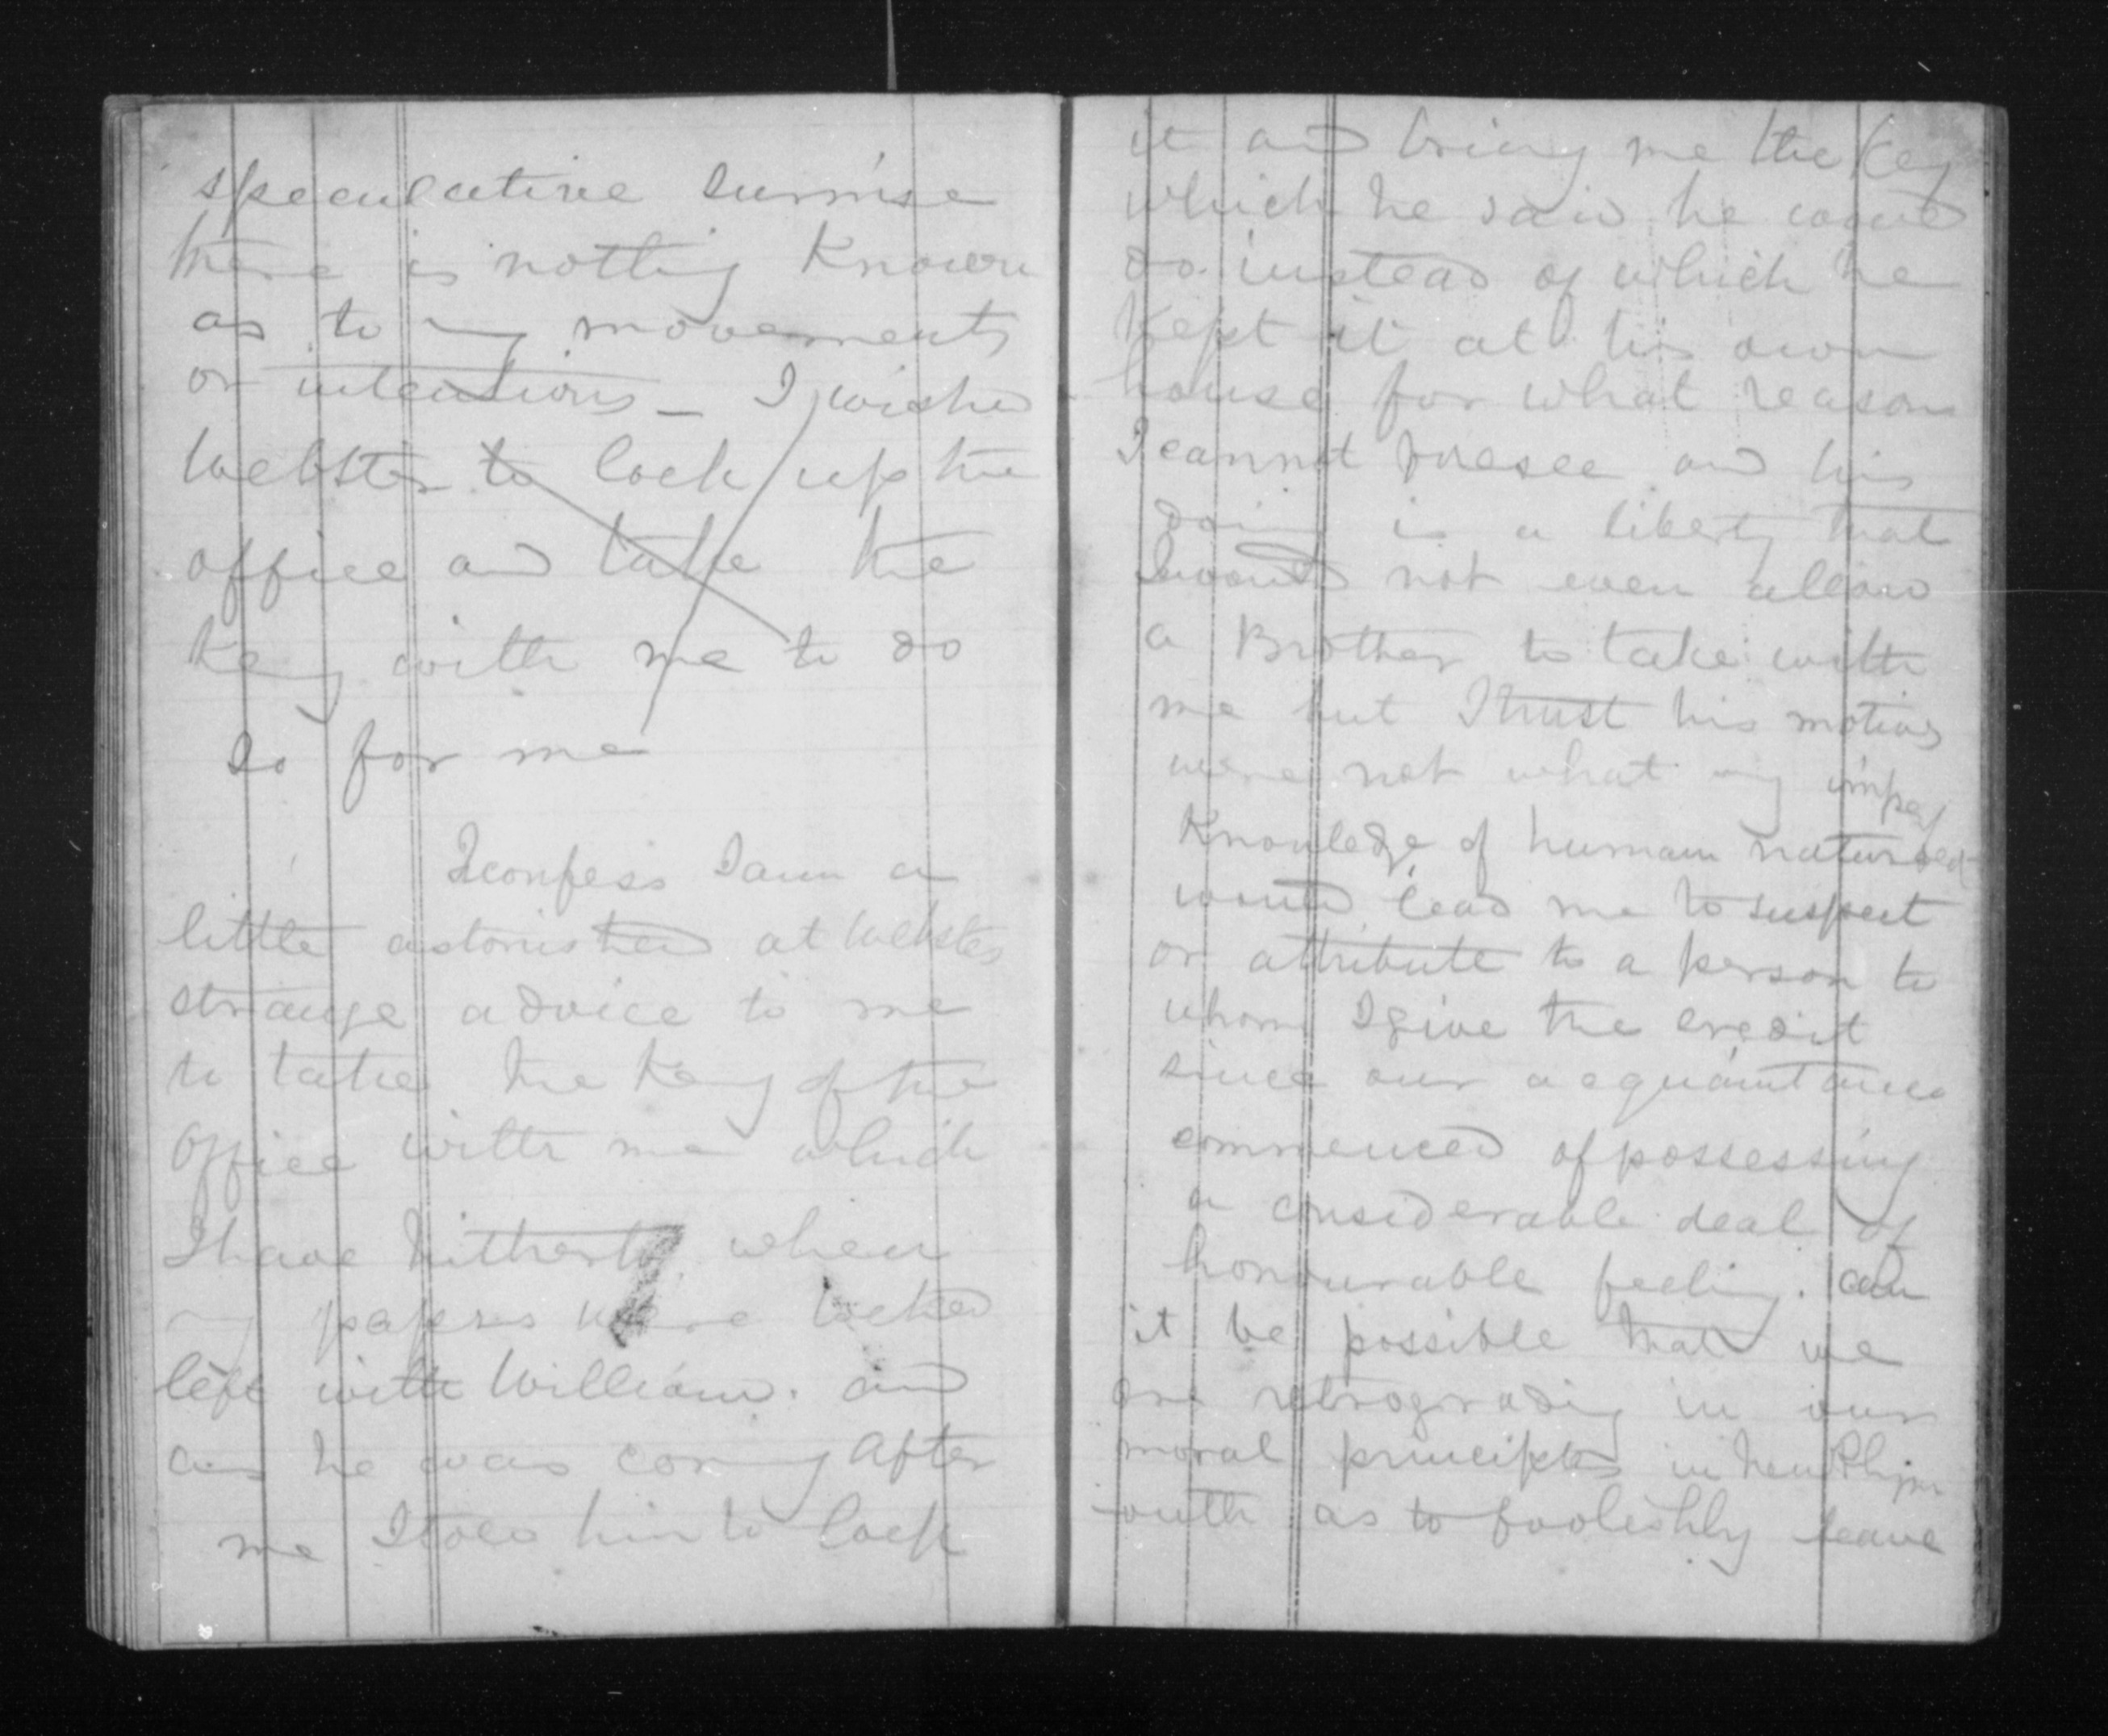 speculative surmise
there is nothing Known
as to my movements
or intentions _ I wished
Webster to lock up the
office and take the
Key with me to do
so for me
I confess I am a
little astonished at Websters
strange advice to me
to take the Key of the
Office with me which
I have hitherto when
my papers were locked
left with William. and
as he was coming After
me I told him to lock
it and bring me the Key
which he said he would
do instead of which he
Kept it at his own
house for what reason
I cannot foresee and his
doing is a liberty that
I would not even allow
a Brother to take with
me but I trust his motives
were not what my imperf
Knowledge of human nature ect
would lead me to suspect
or attribute to a person to
whom I give the credit
since our acquaintance
commenced of possessing
a considerable deal of
honourable feeling. Can
it be possible that we
are retrograding in our
moral principles in New Plym
outh as to foolishly leave